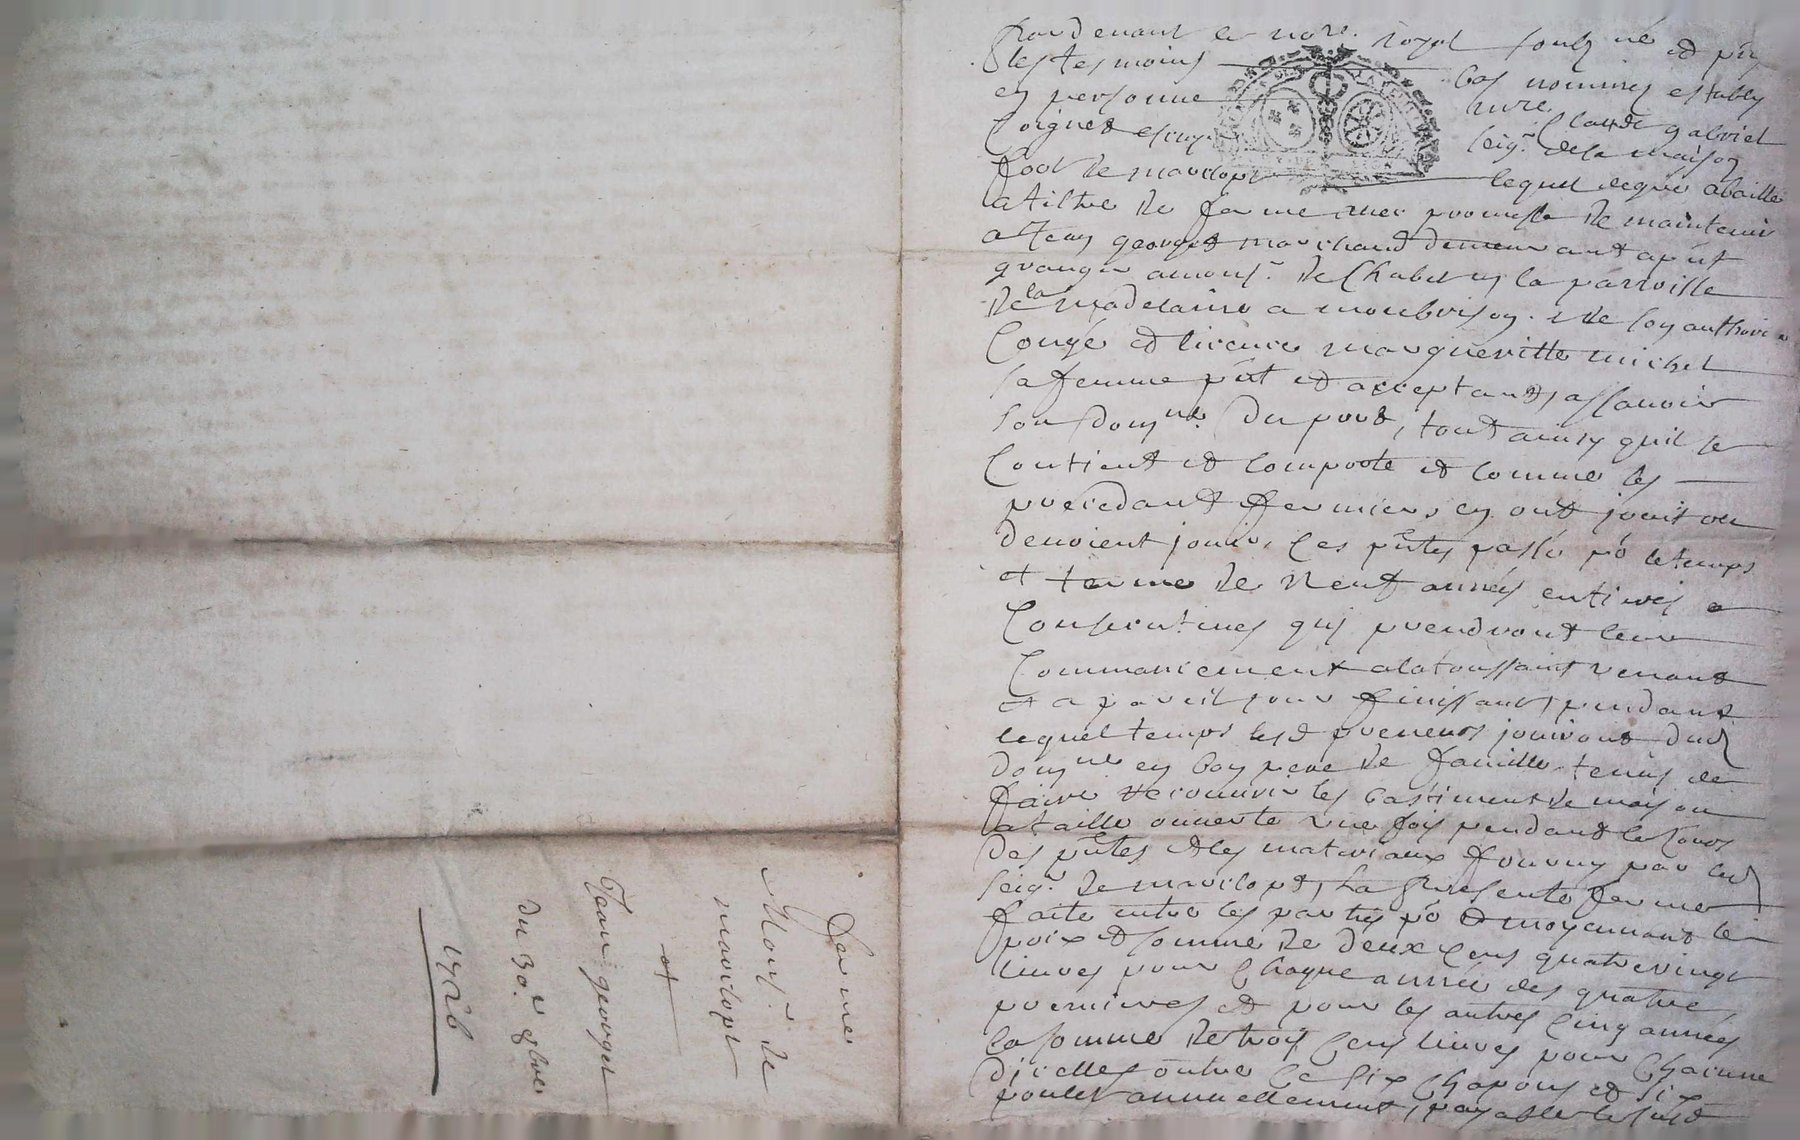 Pardevant le no.re royal soubz né et pñs
les tesmoins bas nommés estably
en personne m.re Claude gabriel
Coignet escuyer seig.r de la maison
fort de marclopt lequel de gré a baillé
a tiltre de ferme avec promesse de maintenir
a Jean georget marchand demeurant a pñt
granger a mons.r de Chabet en la parroisse
de la madelaine a monbrison. et de son authorité
Congé et licence margueritte michel
sa femme pñt et acceptant, assavoir
son dom.ne du port, tout ainsy qu'il se
Contient et comporte et comme les
precedant fermiers en ont jouit ou
devoient jouir. Ces pñtes passé po le temps
et terme de neuf années entieres et
Consecutives qui prendront leur
Commancement a la toussaint venant
et a pareil jour finissant, pendant
lequel temps lesd preneurs jouiront dud
dom.ne en bon pere de famille tenus de
faire recouvrir les bastiment de maison
a taille ouverte une fois pendant le Cours
des pñtes et les materiaux fourny par led
seig.r de marclopt, La presente ferme
faite entre les parties po et moyennant le
prix et somme de deux Cens quatre vingt
livres pour Chaque année des quatre
premieres et pour les autres Cinq années
la somme de trois Cens livres pour Chacune
d'icelles outre Ce six Chapons et six
poulet annuellement, payable lesusd
ferme
Mons.r de
marclopt
a
Jean georget
du 30.e 8bre
1726